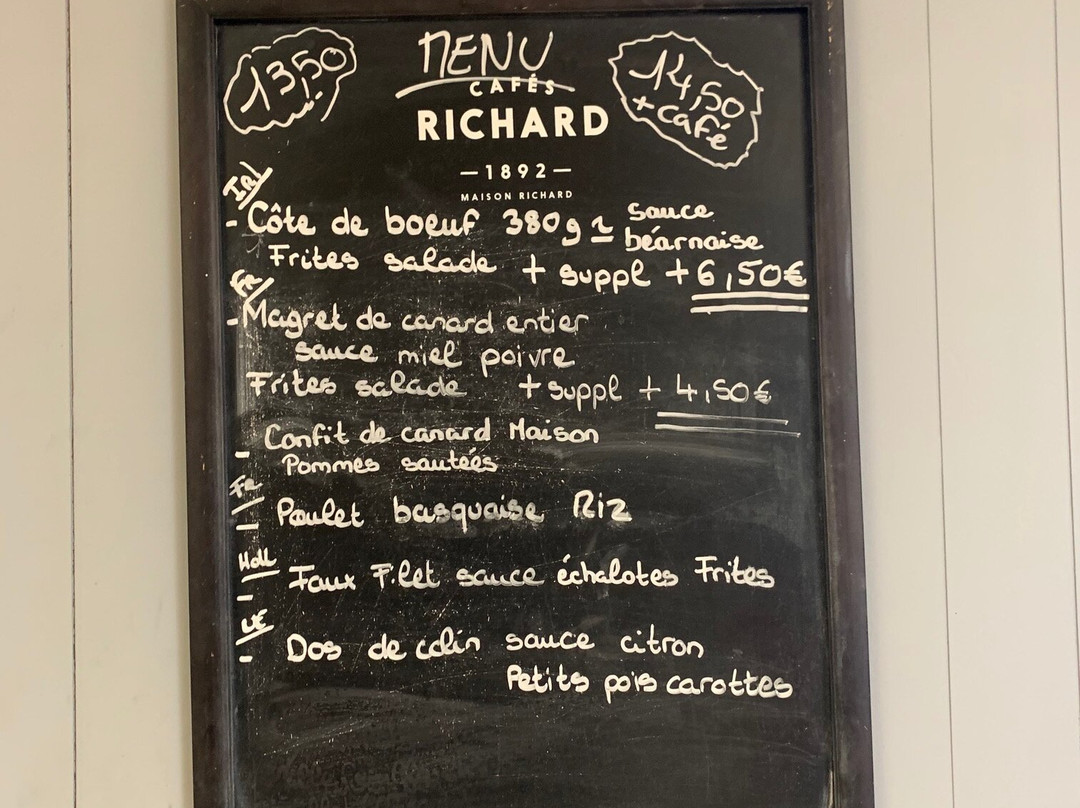 13,50
MENU
14,50
+ café
CAFÉS
RICHARD
—1892—
MAISON RICHARD
IRL
- Côte de boeuf 380g ~ sauce
béarnaise
Frites salade + suppl + 6,50€
FR
- Magret de canard entier
sauce miel poivre
Frites salade + suppl + 4,50€
- Confit de canard Maison
Pommes sautées
FR
- Poulet basquaise Riz
Holl
- Faux Filet sauce échalotes Frites
UE
- Dos de colin sauce citron
Petits pois carottes